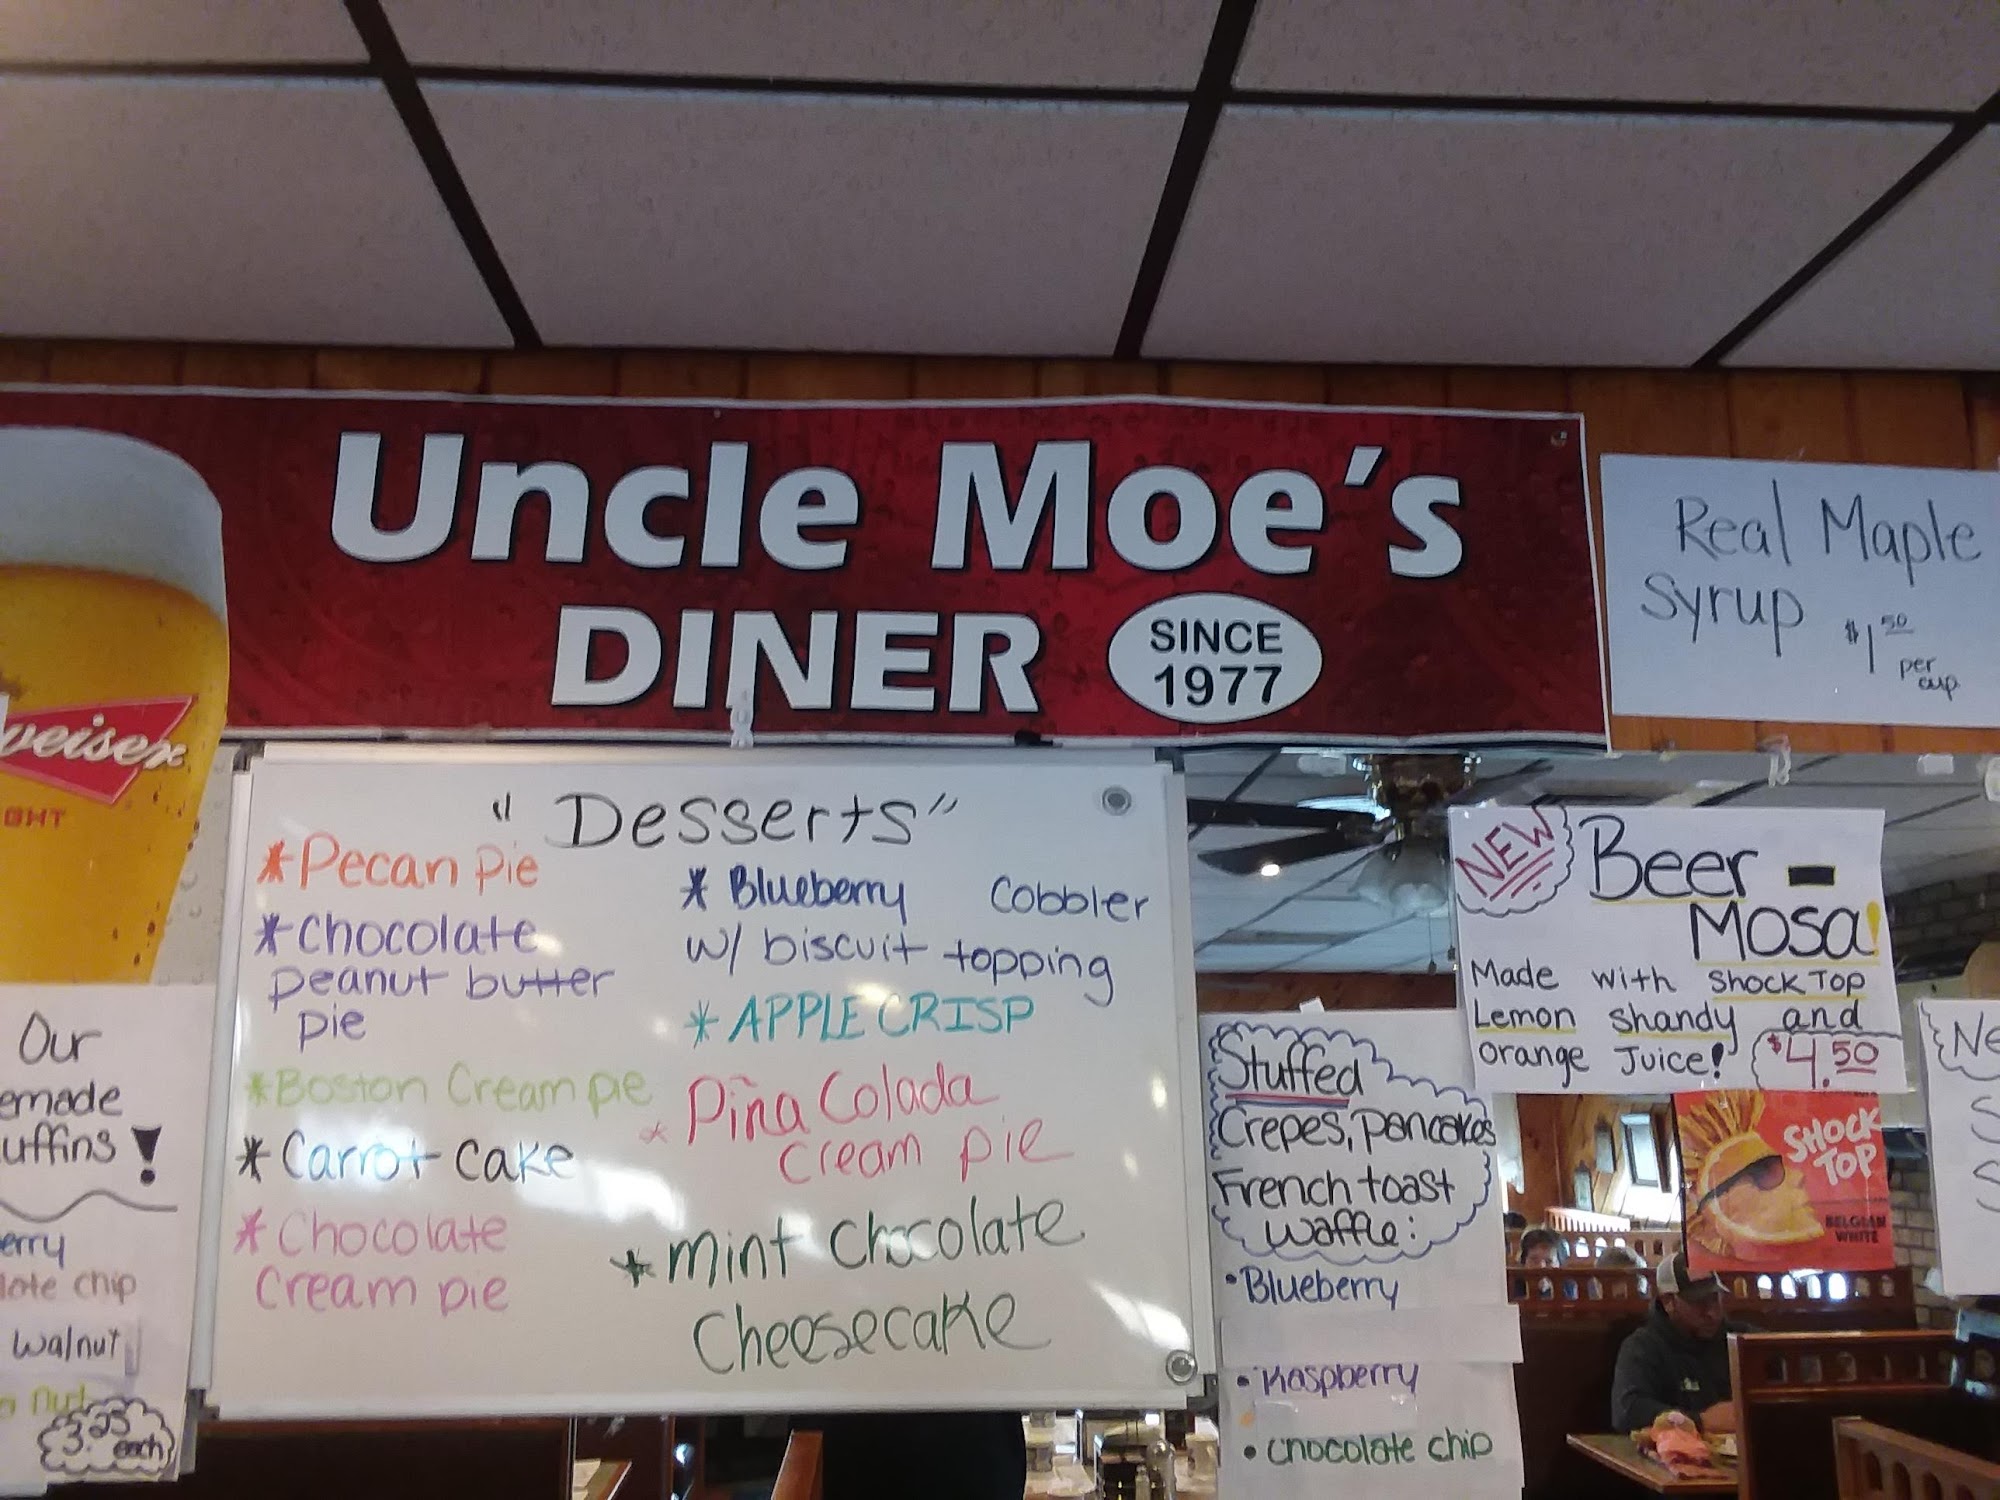 Uncle Moe's
DINER
SINCE
1977
Real Maple
Syrup
$1.50
per
cup
"Desserts"
*Pecan Pie
*Chocolate
peanut butter
pie
*Boston Cream pie
*Carrot cake
*Chocolate
Cream pie
*Blueberry Cobbler
w/ biscuit topping
*APPLE CRISP
*Piña Colada
cream pie
*Mint Chocolate
Cheesecake
NEW
Beer -
Mosa!
Made with Shock Top
Lemon Shandy and
orange Juice!
$4.50
SHOCK
TOP
BELGIAN
WHITE
Stuffed
Crepes, pancakes
French toast
waffle:
•Blueberry
•Raspberry
•Chocolate chip
weiser
GHT
Our
emade
uffins!
erry
late chip
walnut
nut
3.25
each
Ne
S
S